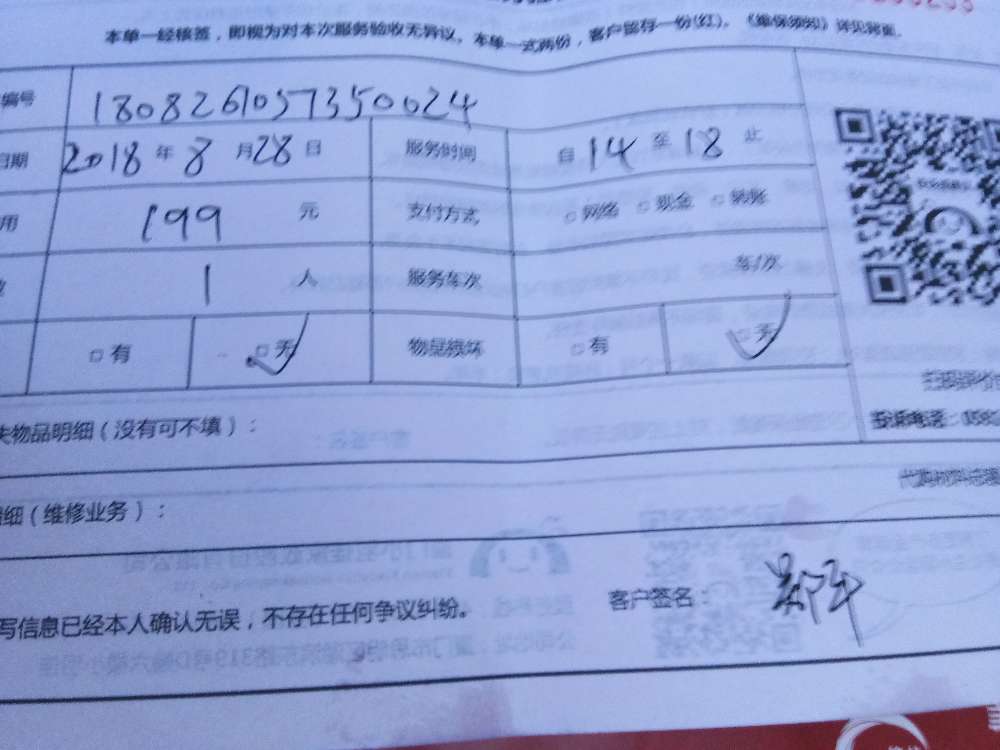 本单一经核签，即视为对本次服务验收无异议。本单一式两份，客户留存一份(红)。《维保须知》详见背面。
编号 1808261057350024
日期 2018 年 8 月 28 日 服务时间 自 14 至 18 止
用 199 元 支付方式 □ 网络 □ 现金 □ 转账
1 人 服务车次 车/次
□ 有 □ 无 物品损坏 □ 有 □ 无
失物品明细（没有可不填）：
投诉电话：
明细（维修业务）：
写信息已经本人确认无误，不存在任何争议纠纷。 客户签名：